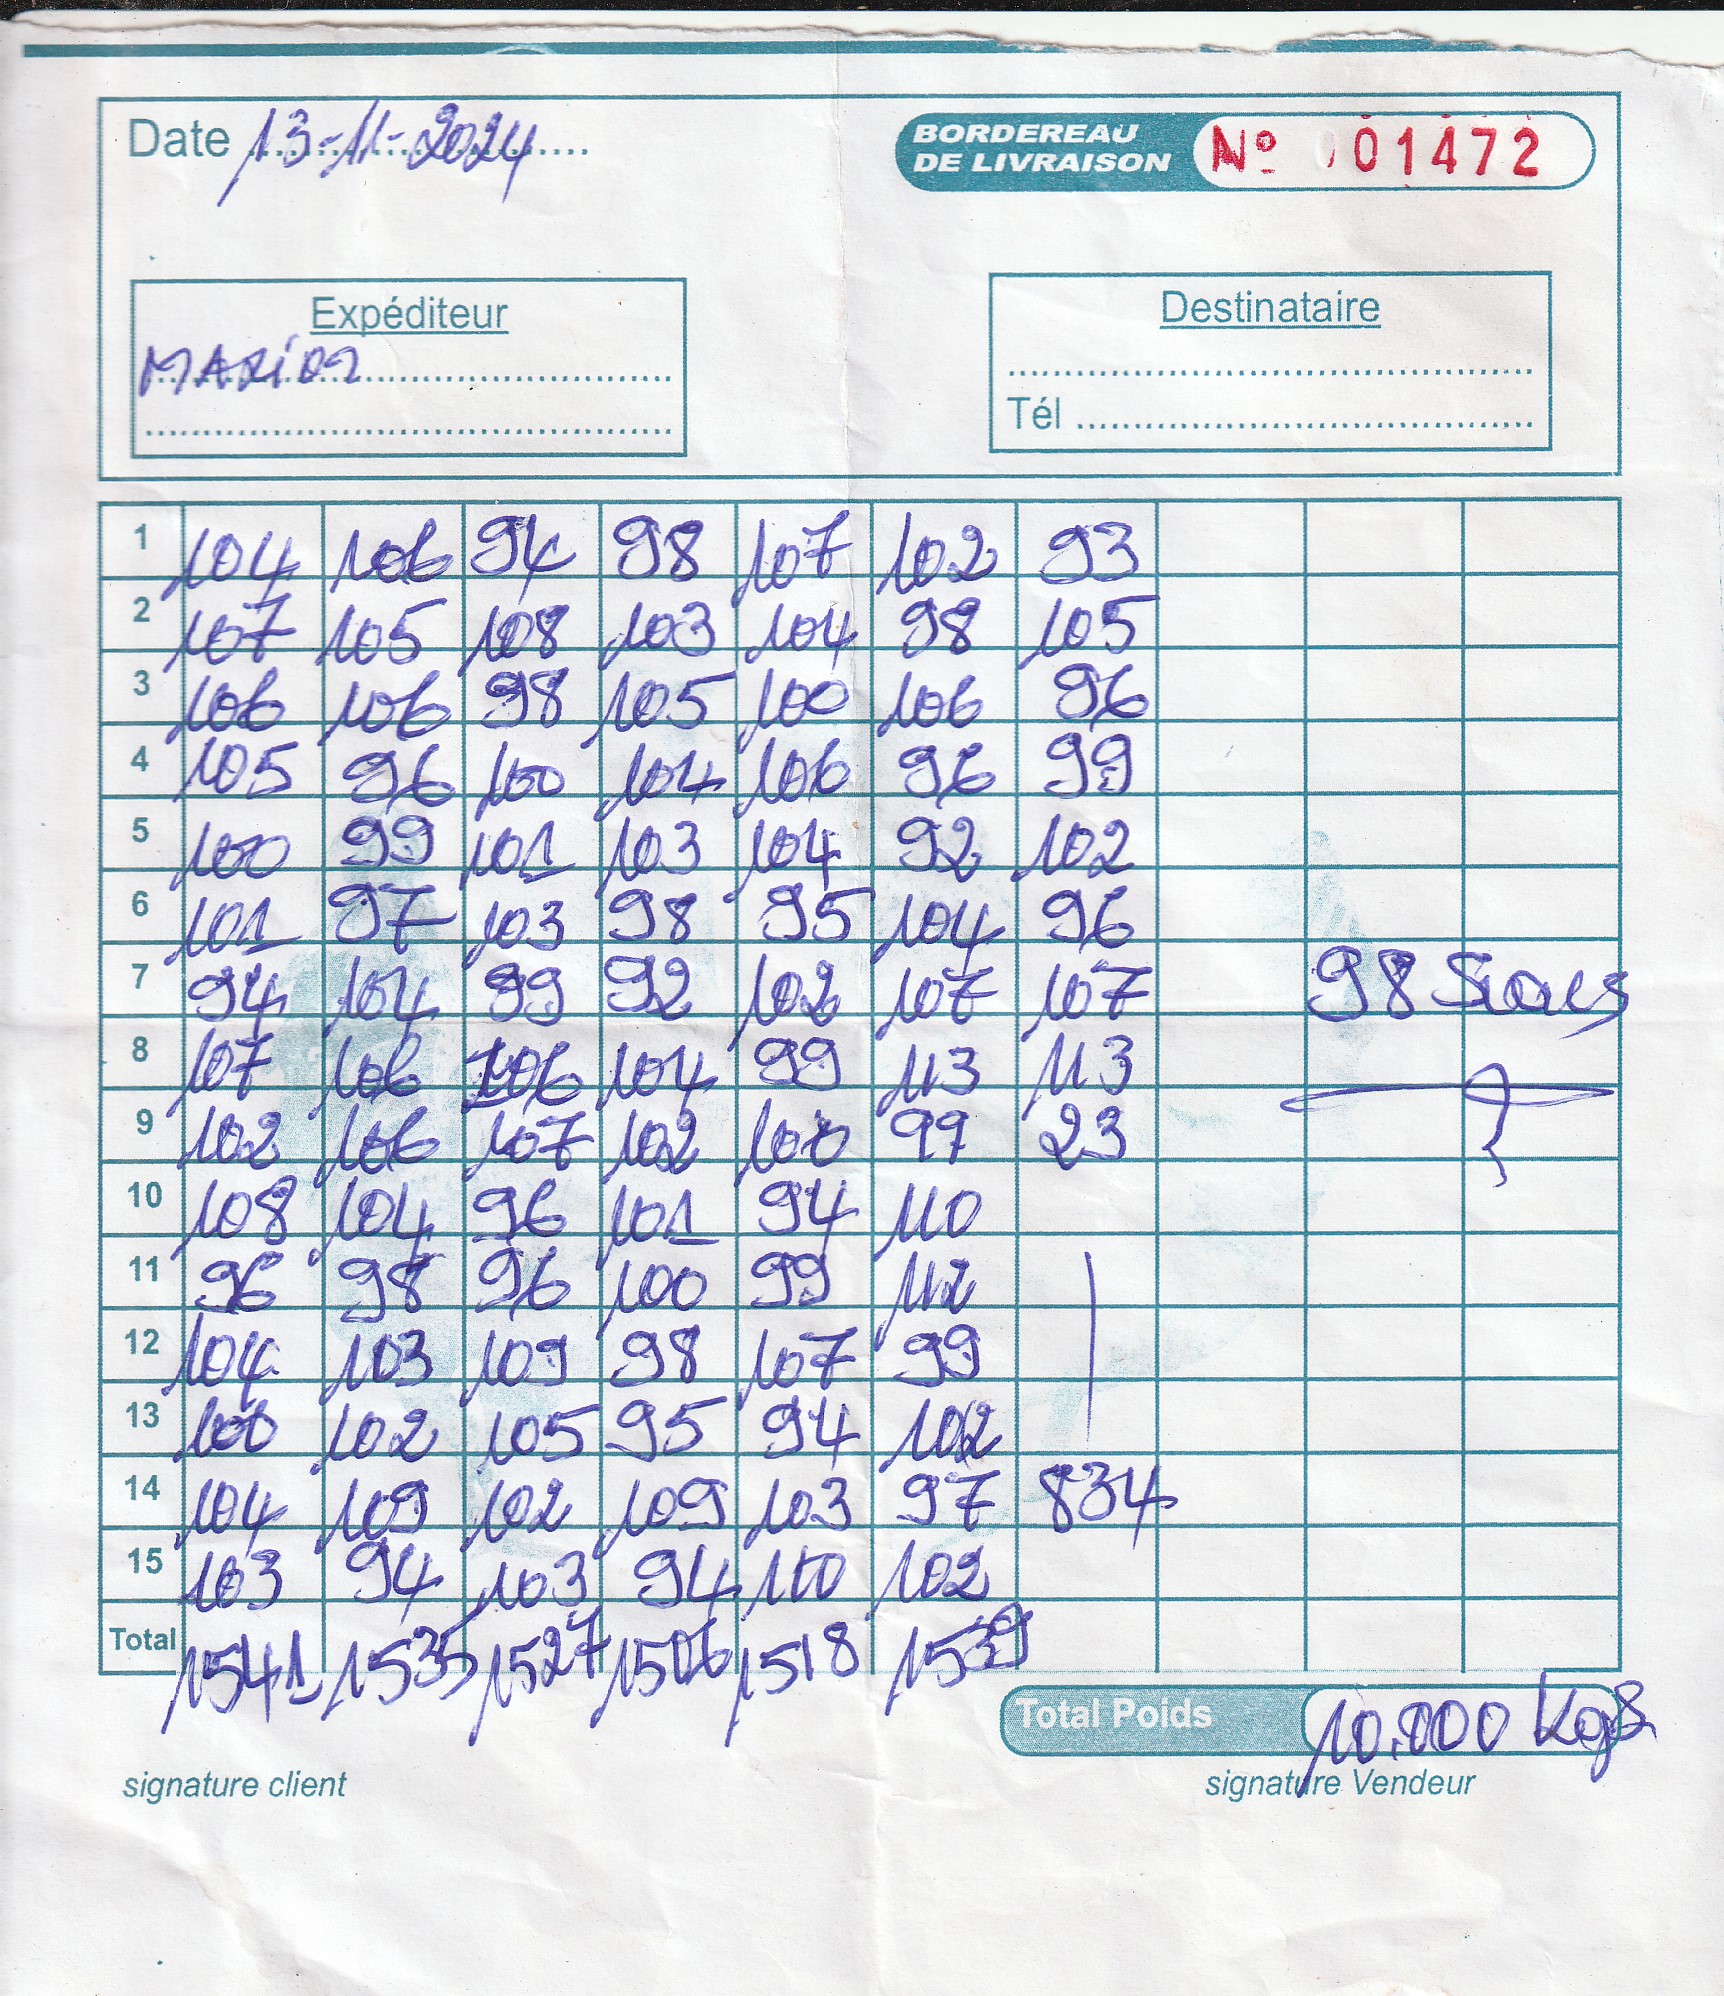 Date 13-11-2024
BORDEREAU
DE LIVRAISON
Nº 001472
Expéditeur
MARION
Destinataire
Tél
1 104 106 94 98 107 102 93
2 107 105 108 103 104 98 105
3 106 106 98 105 100 106 96
4 105 96 100 104 106 96 99
5 100 99 101 103 104 92 102
6 101 97 103 98 95 104 96
7 94 104 99 92 102 107 107 98 Sacs
8 107 106 106 104 99 113 113
9 102 106 107 102 100 99 23
10 108 104 96 101 94 110
11 96 98 96 100 99 112
12 104 103 109 98 107 99
13 100 102 105 95 94 102
14 104 109 102 109 103 97 834
15 103 94 103 94 110 102
Total 1541 1535 1527 1506 1518 1539
Total Poids 10.000 Kgs
signature client
signature Vendeur